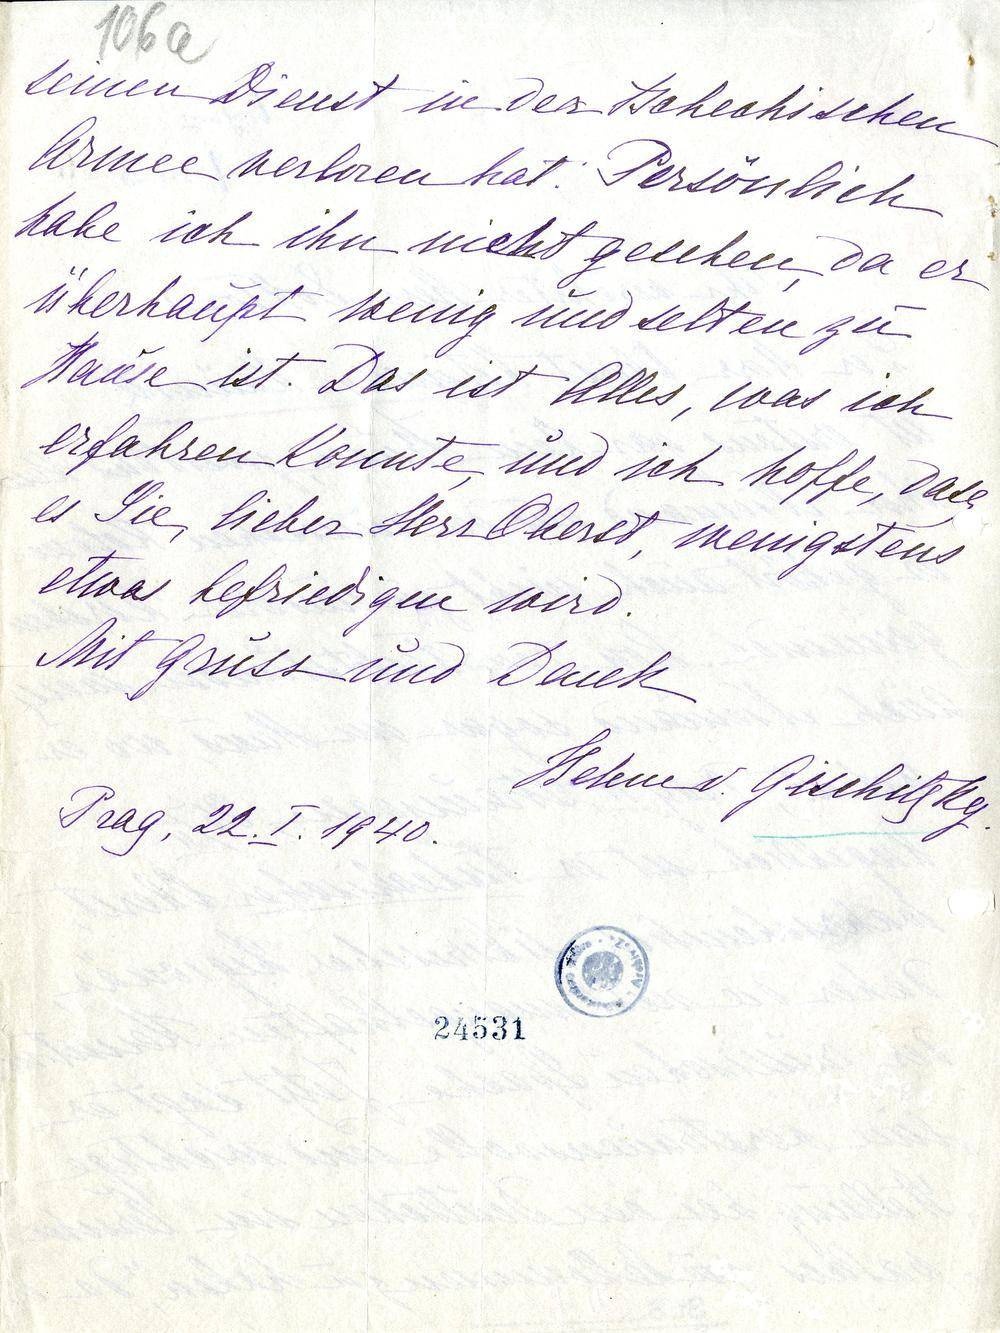 106a
seinen Dienst in der tschechischen
Armee verloren hat. Persönlich
habe ich ihn nicht gesehen, da er
überhaupt wenig und selten zu
Hause ist. Das ist Alles, was ich
erfahren konnte, und ich hoffe, dass
es Sie, lieber Herr Oberst, wenigstens
etwas befriedigen wird.
Mit Gruss und Dank
Helene v. Gischitzky.
Prag, 22. I. 1940.
24531